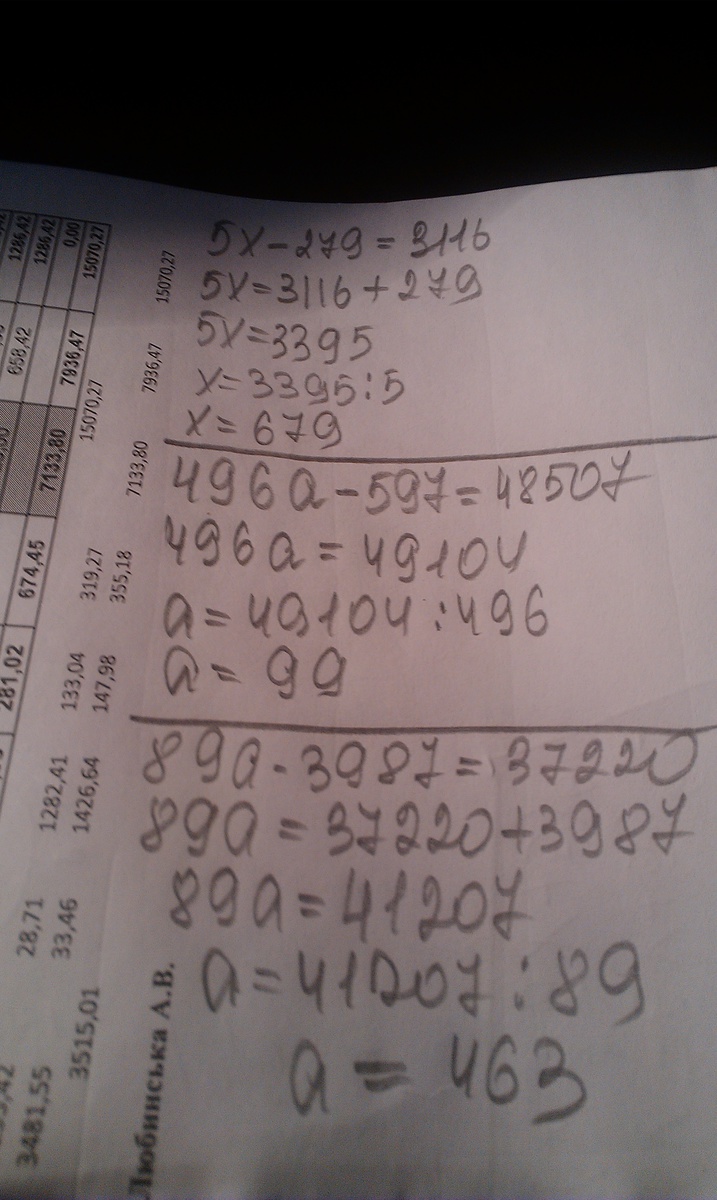 5x-279=3116
5x=3116+279
5x=3395
x=3395:5
x=679
496a-597=48507
496a=49104
a=49104:496
a=99
89a-3987=37220
89a=37220+3987
89a=41207
a=41207:89
a=463
1286,42
1286,42
0,00
15070,27
658,42
7936,47
15070,27
15070,27
7936,47
7133,80
7133,80
674,45
319,27
355,18
281,02
133,04
147,98
1282,41
1426,64
28,71
33,46
3515,01
3481,55
Любинська А.В.